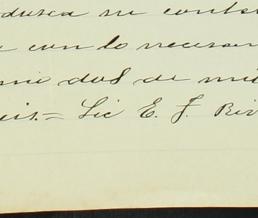 produzca su contes
con lo necesar
mio dos de mil
seis.= Lic E. J. Riv